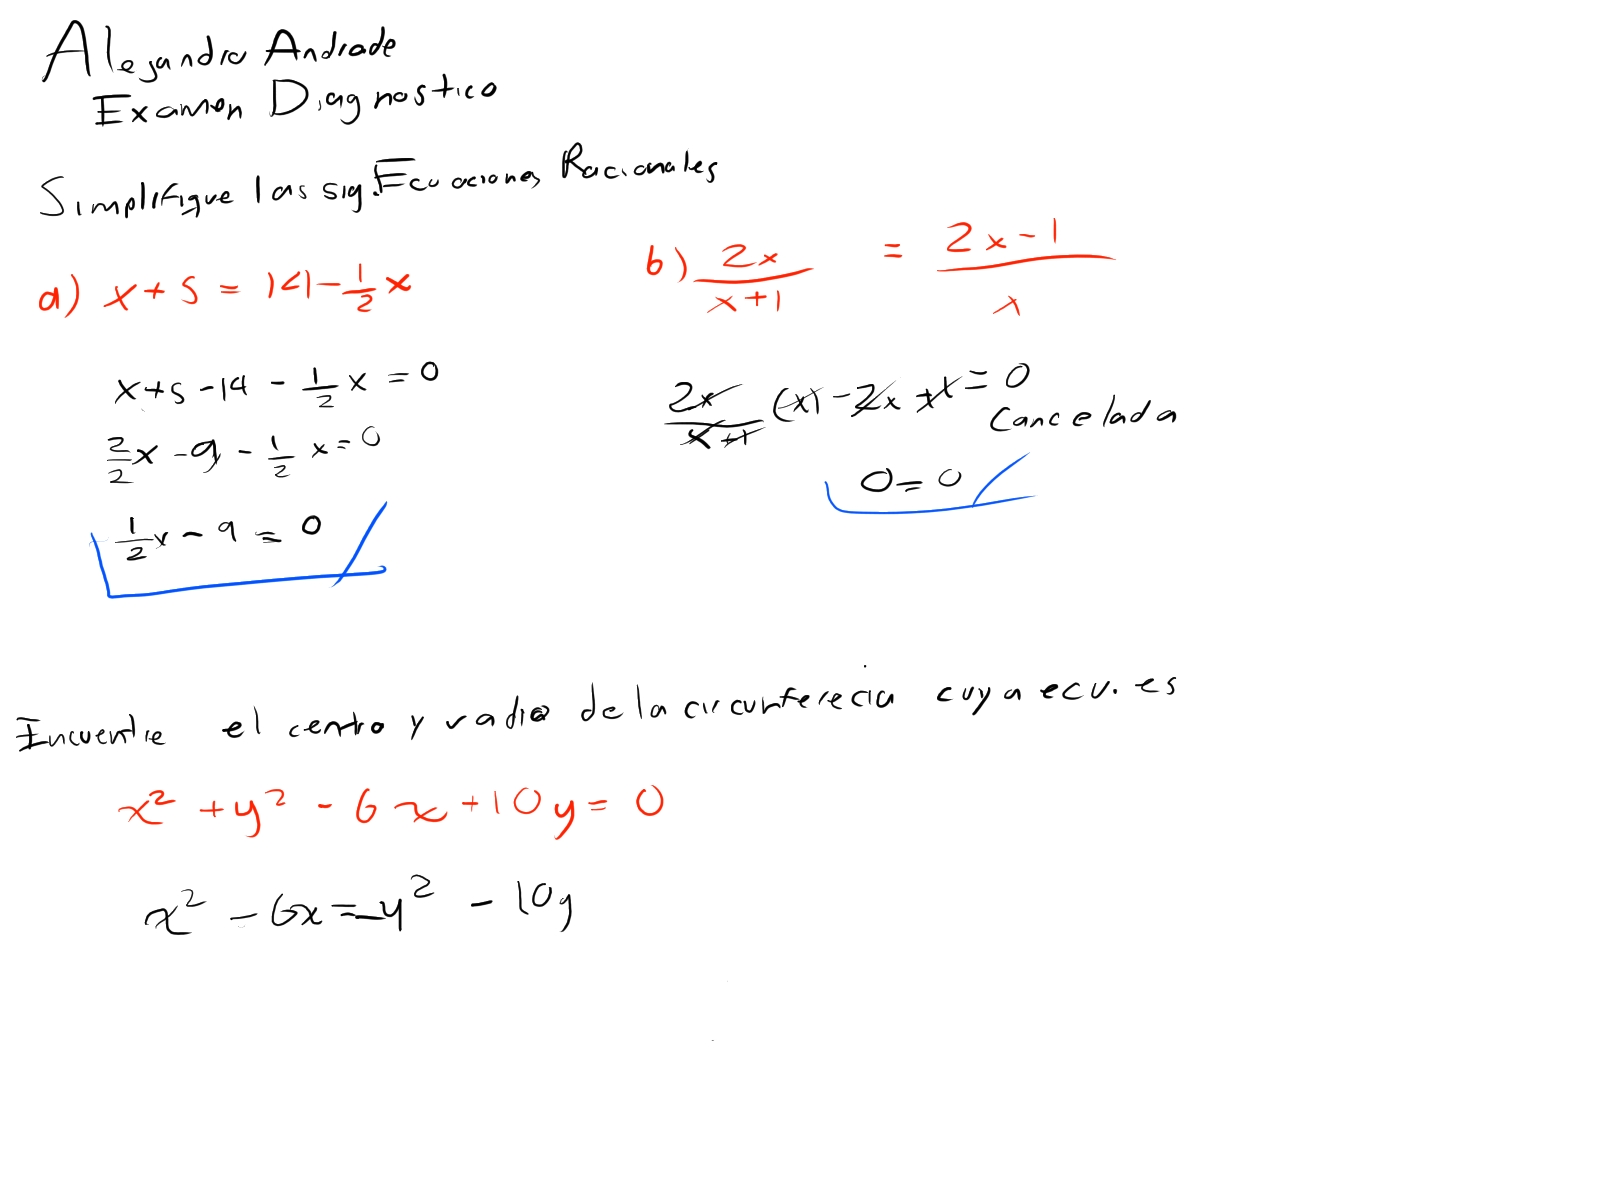 Alejandro Andrade
Examen Diagnostico
Simplifique las sig. Ecuaciones Racionales
a) x + 5 = 14 - 1/2 x
b) 2x/(x+1) = (2x-1)/x
x+5 -14 - 1/2 x = 0
2/2 x - 9 - 1/2 x = 0
1/2 x - 9 = 0
2x/(x+1) (x) - 2x + x = 0
Cancelada
0 = 0
Encuentre el centro y radio de la circunferecia cuya ecu. es
x² + y² - 6x + 10y = 0
x² - 6x = -y² - 10y